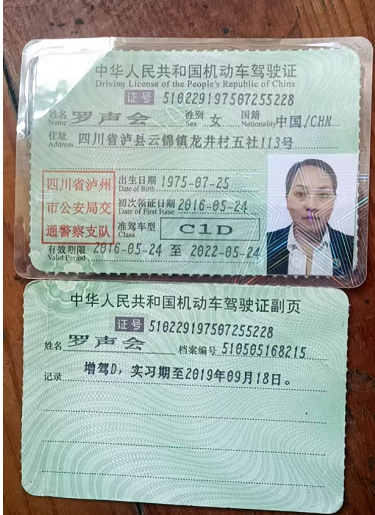 中华人民共和国机动车驾驶证
Driving License of the People's Republic of China
证号 510229197507255228
姓名 罗声会 性别 女 国籍 中国/CHN
Name Sex Nationality
住址 四川省泸县云锦镇龙井村五社113号
Address
四川省泸州
市公安局交
通警察支队
出生日期 1975-07-25
Date of Birth
初次领证日期 2016-05-24
Date of First Issue
准驾车型 C1D
Class
有效期限 2016-05-24 至 2022-05-24
Valid Period
中华人民共和国机动车驾驶证副页
证号 510229197507255228
姓名 罗声会 档案编号 510505168215
记录 增驾D，实习期至2019年09月18日。